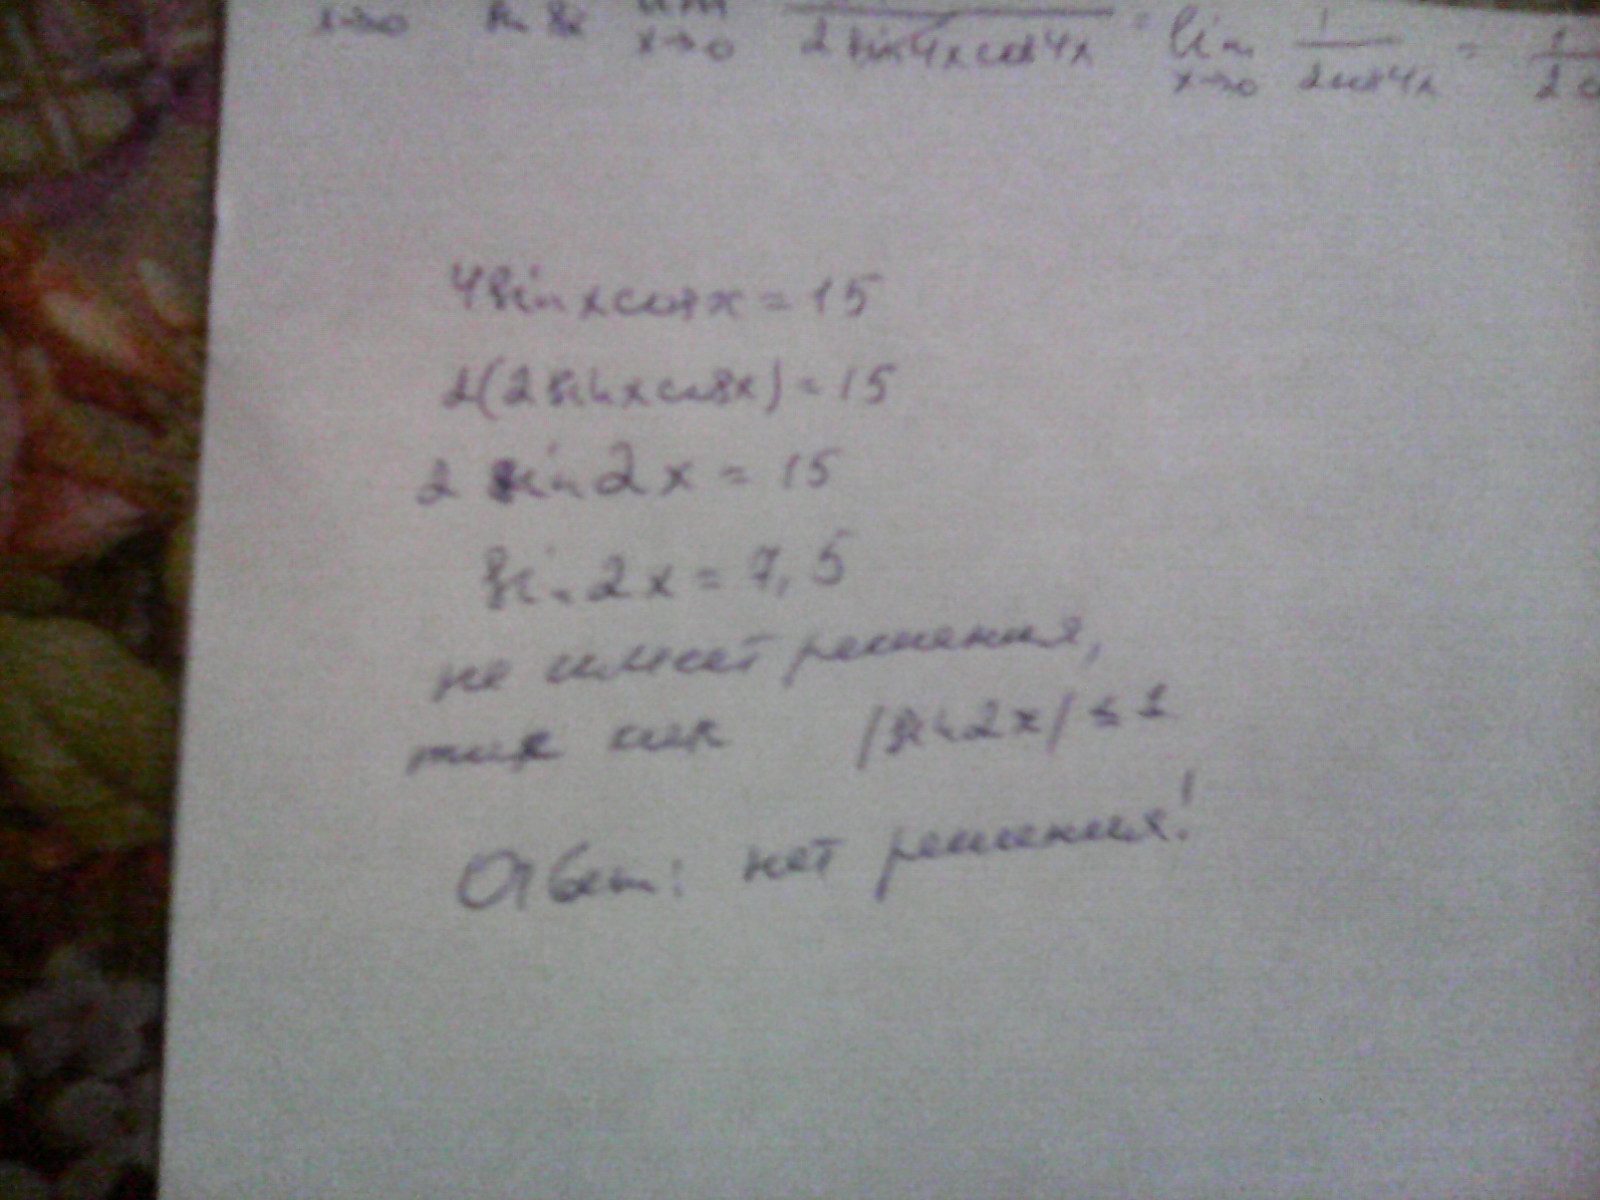 x→0 lim x→0 2 sin4x cos4x = lim x→0 1/2cos4x = 1/2
4 sin x cos x = 15
2(2 sin x cos x) = 15
2 sin 2x = 15
sin 2x = 7,5
не имеет решения,
так как |sin 2x| ≤ 1
Ответ: нет решения!